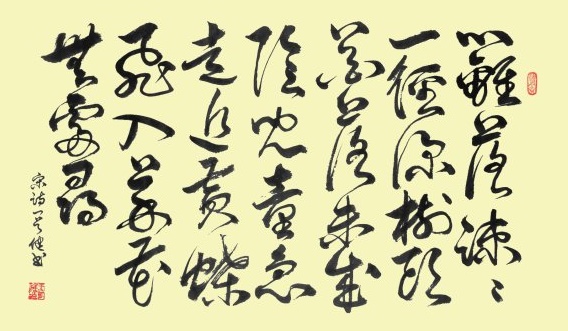 籬落疎〻
一徑深樹頭
花落未成
陰兒童急
走追黃蝶
飛入菜花
無處尋
宋詩 健書